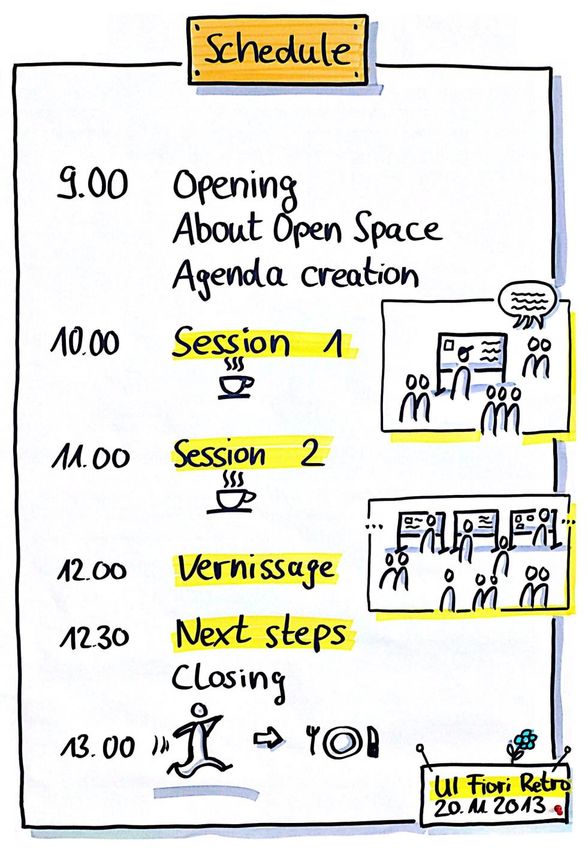 Schedule
9.00 Opening
About Open Space
Agenda creation
10.00 Session 1
11.00 Session 2
12.00 Vernissage
12.30 Next steps
Closing
13.00
UI Fiori Retro
20.11.2013